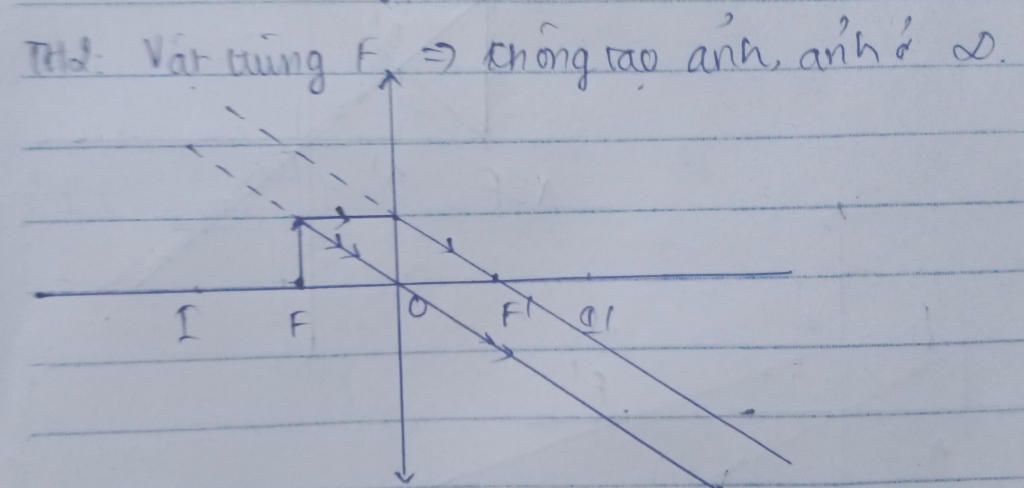 TH2: Vật trùng F => không tạo ảnh, ảnh ở ∞.
I F O F'